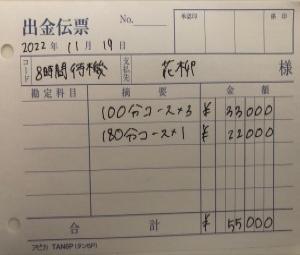 出金伝票
No.
承認印
係印
2022年11月19日
コード
8時間待機
支払先
花柳 様
勘定科目 摘要 金額
100分コース×3 ¥33000
180分コース×1 ¥22000
合計 ¥55000
アピカ TAN6P (タン6P)